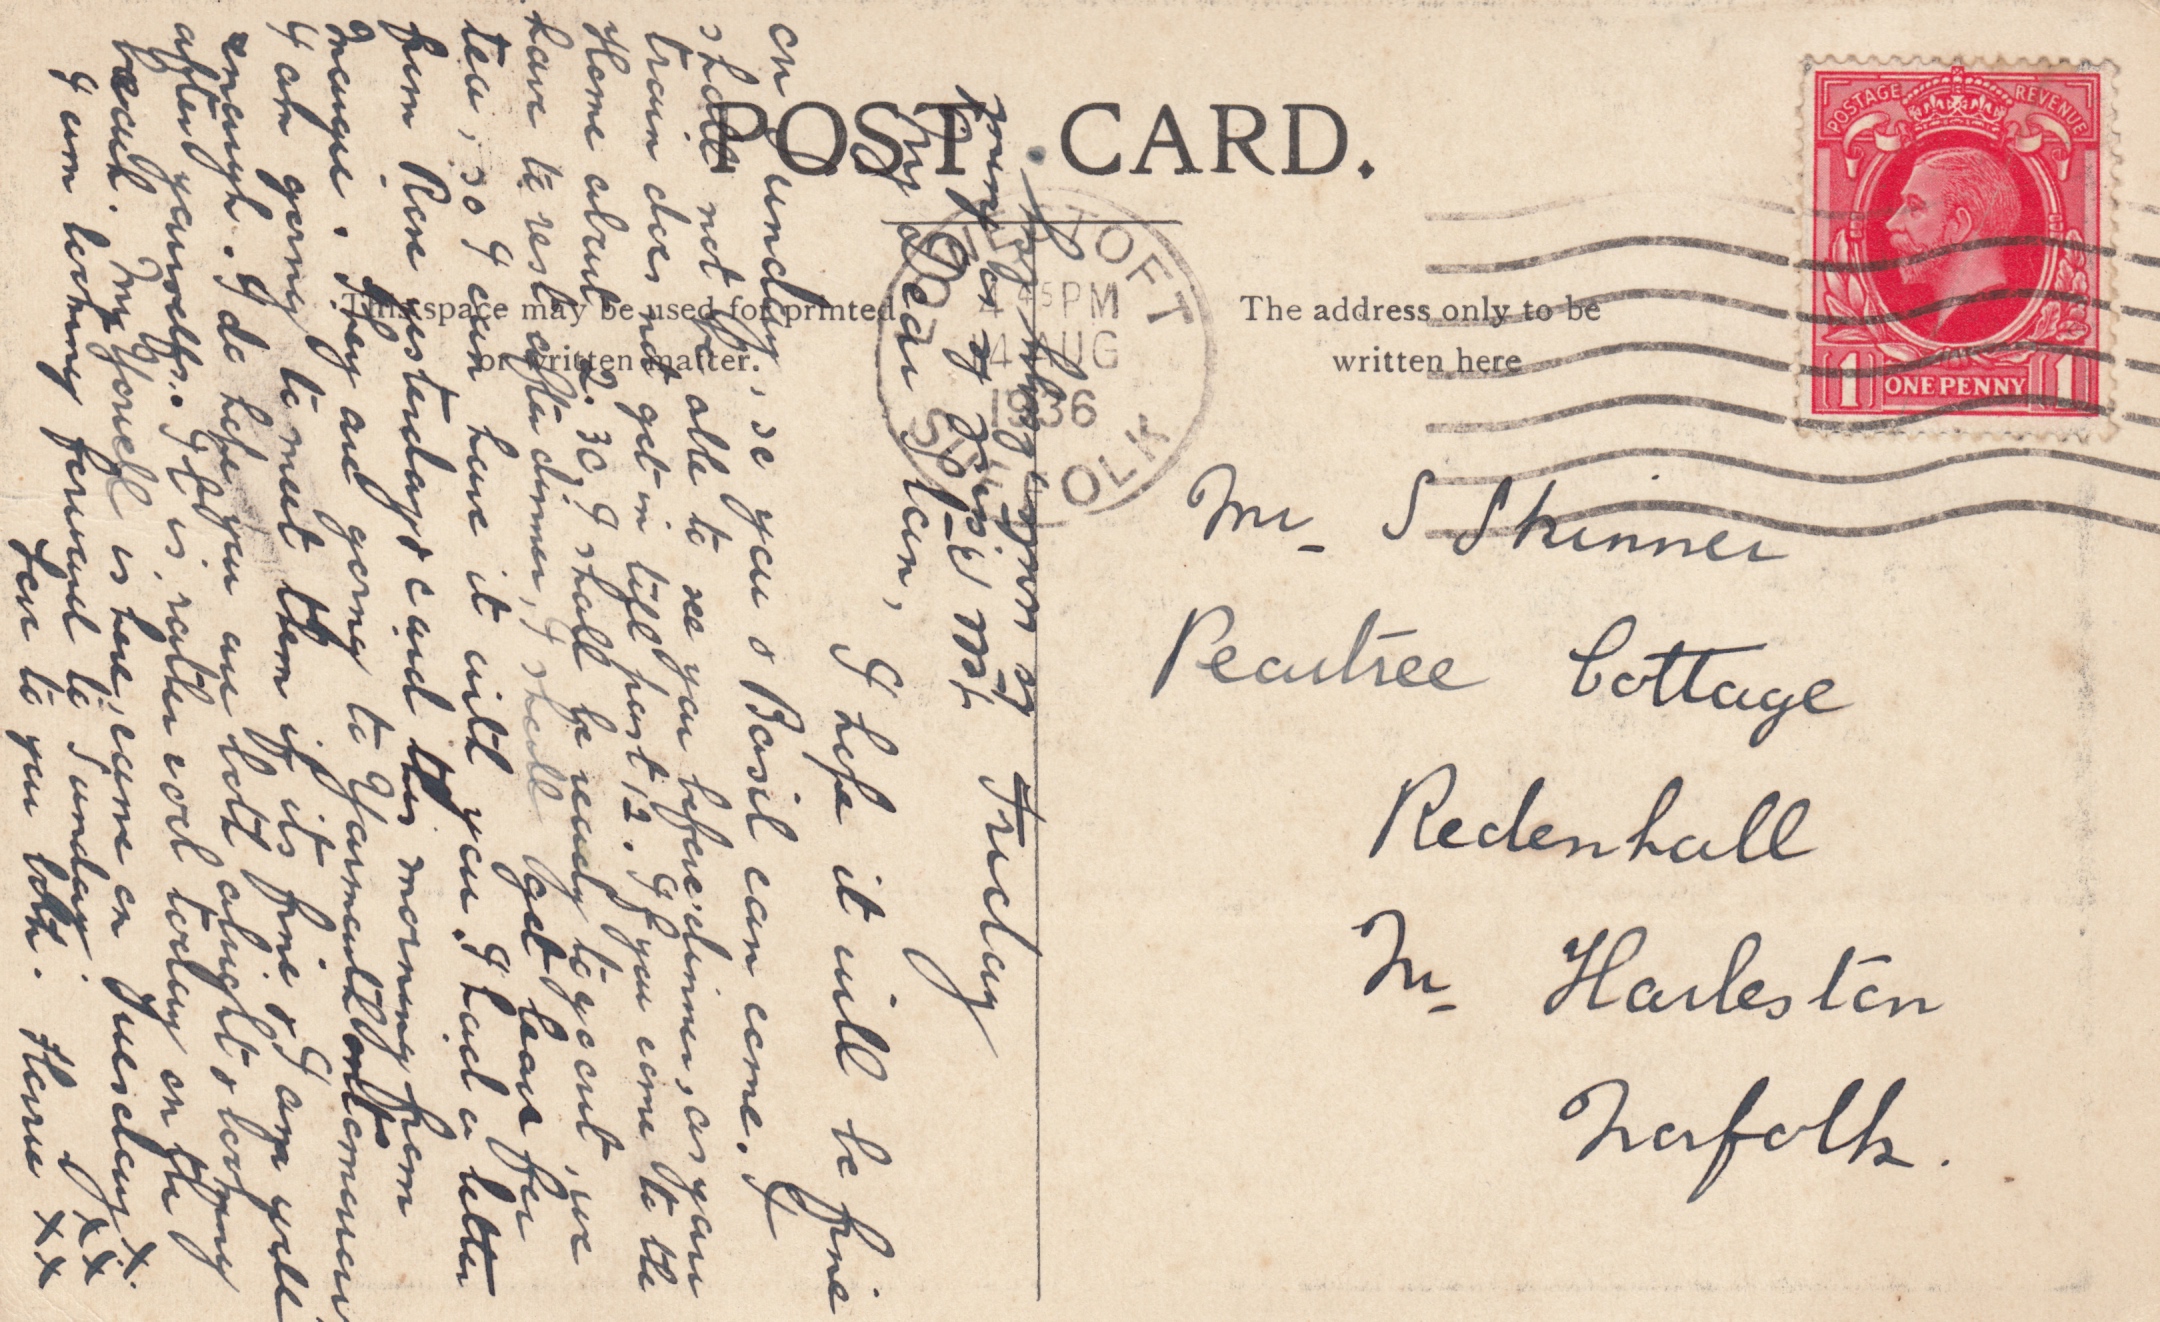 POST CARD.
This space may be used for printed
or written matter.
The address only to be
written here
POSTAGE REVENUE
1 ONE PENNY 1
LOWESTOFT
45 PM
4 AUG
1936
SUFFOLK
Mr S Skinner
Peartree Cottage
Redenhall
Nr Harleston
Norfolk.
Friday
My Dear Len,
I hope it will be fine
on Sunday, so you & Basil can come. I
shall not be able to see you before dinner, as your
train does not get in till past 12. If you come to the
Home about 2.30 I shall be ready to go out, we
have to rest after dinner, I shall get leave for
tea, so I can have it with you. I had a letter
from Rose yesterday & card this morning from
They are going to Yarmouth on
I am going to meet them if its fine & I am well
enough. I do hope you are both alright & looking
after yourselfs. It is rather cool today on the
is here, came on Tuesday x
I am looking forward to Sunday. xx
Love to you both. Flerrie xx